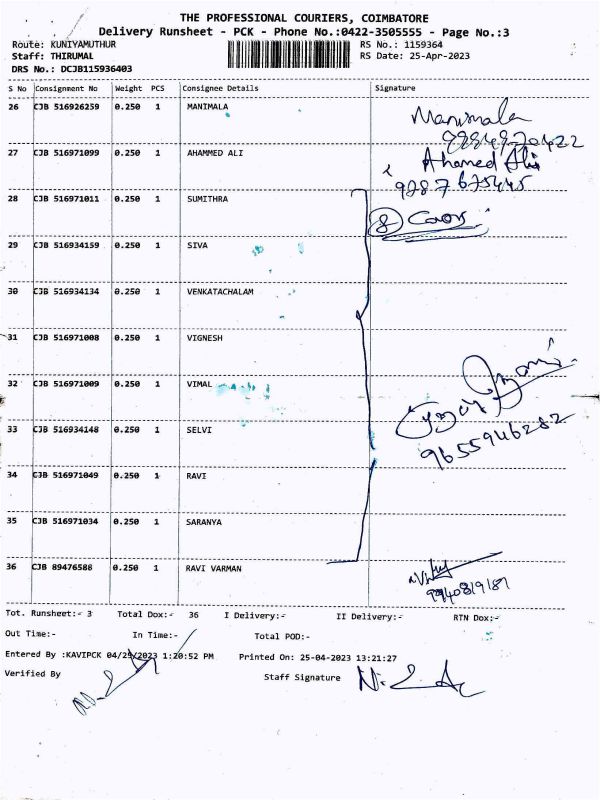 THE PROFESSIONAL COURIERS, COIMBATORE
Delivery Runsheet - PCK - Phone No.:0422-3505555 - Page No.:3
Route: KUNIYAMUTHUR RS No.: 1159364
Staff: THIRUMAL RS Date: 25-Apr-2023
DRS No.: DCJB115936403
S No Consignment No Weight PCS Consignee Details Signature
26 CJB 516926259 0.250 1 MANIMALA Manimala
27 CJB 516971099 0.250 1 AHAMMED ALI Ahamed Ali
9287675445
28 CJB 516971011 0.250 1 SUMITHRA 8
29 CJB 516934159 0.250 1 SIVA
30 CJB 516934134 0.250 1 VENKATACHALAM
31 CJB 516971008 0.250 1 VIGNESH
32 CJB 516971009 0.250 1 VIMAL
33 CJB 516934148 0.250 1 SELVI 9655946282
34 CJB 516971049 0.250 1 RAVI
35 CJB 516971034 0.250 1 SARANYA
36 CJB 89476588 0.250 1 RAVI VARMAN
Tot. Runsheet:- 3 Total Dox:- 36 I Delivery:- II Delivery:- RTN Dox:-
Out Time:- In Time:- Total POD:-
Entered By :KAVIPCK 04/25/2023 1:20:52 PM Printed On: 25-04-2023 13:21:27
Verified By Staff Signature